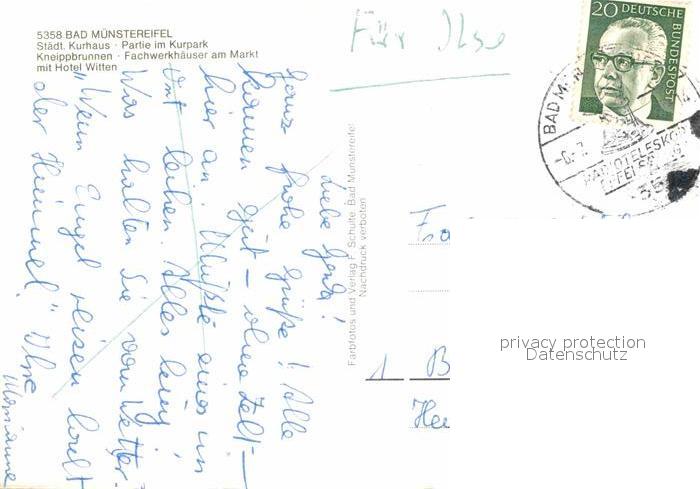 5358 BAD MÜNSTEREIFEL
Städt. Kurhaus · Partie im Kurpark
Kneippbrunnen · Fachwerkhäuser am Markt
mit Hotel Witten
Für Ilse
20 DEUTSCHE BUNDESPOST
BAD MÜN
RADIOTELESKOP
Liebe
Ganz frohe Grüße! Alle
kamen gut – ohne Zelt –
hier an. Mußte eines im
Ort leihen. Alles
Was halten Sie vom Wetter.
"Wenn Engel reisen lacht
der Himmel" Ihre
Marianne
Farbfotos und Verlag F. Schulte, Bad Münstereifel
Nachdruck verboten
Fra
1 B
Her
privacy protection
Datenschutz